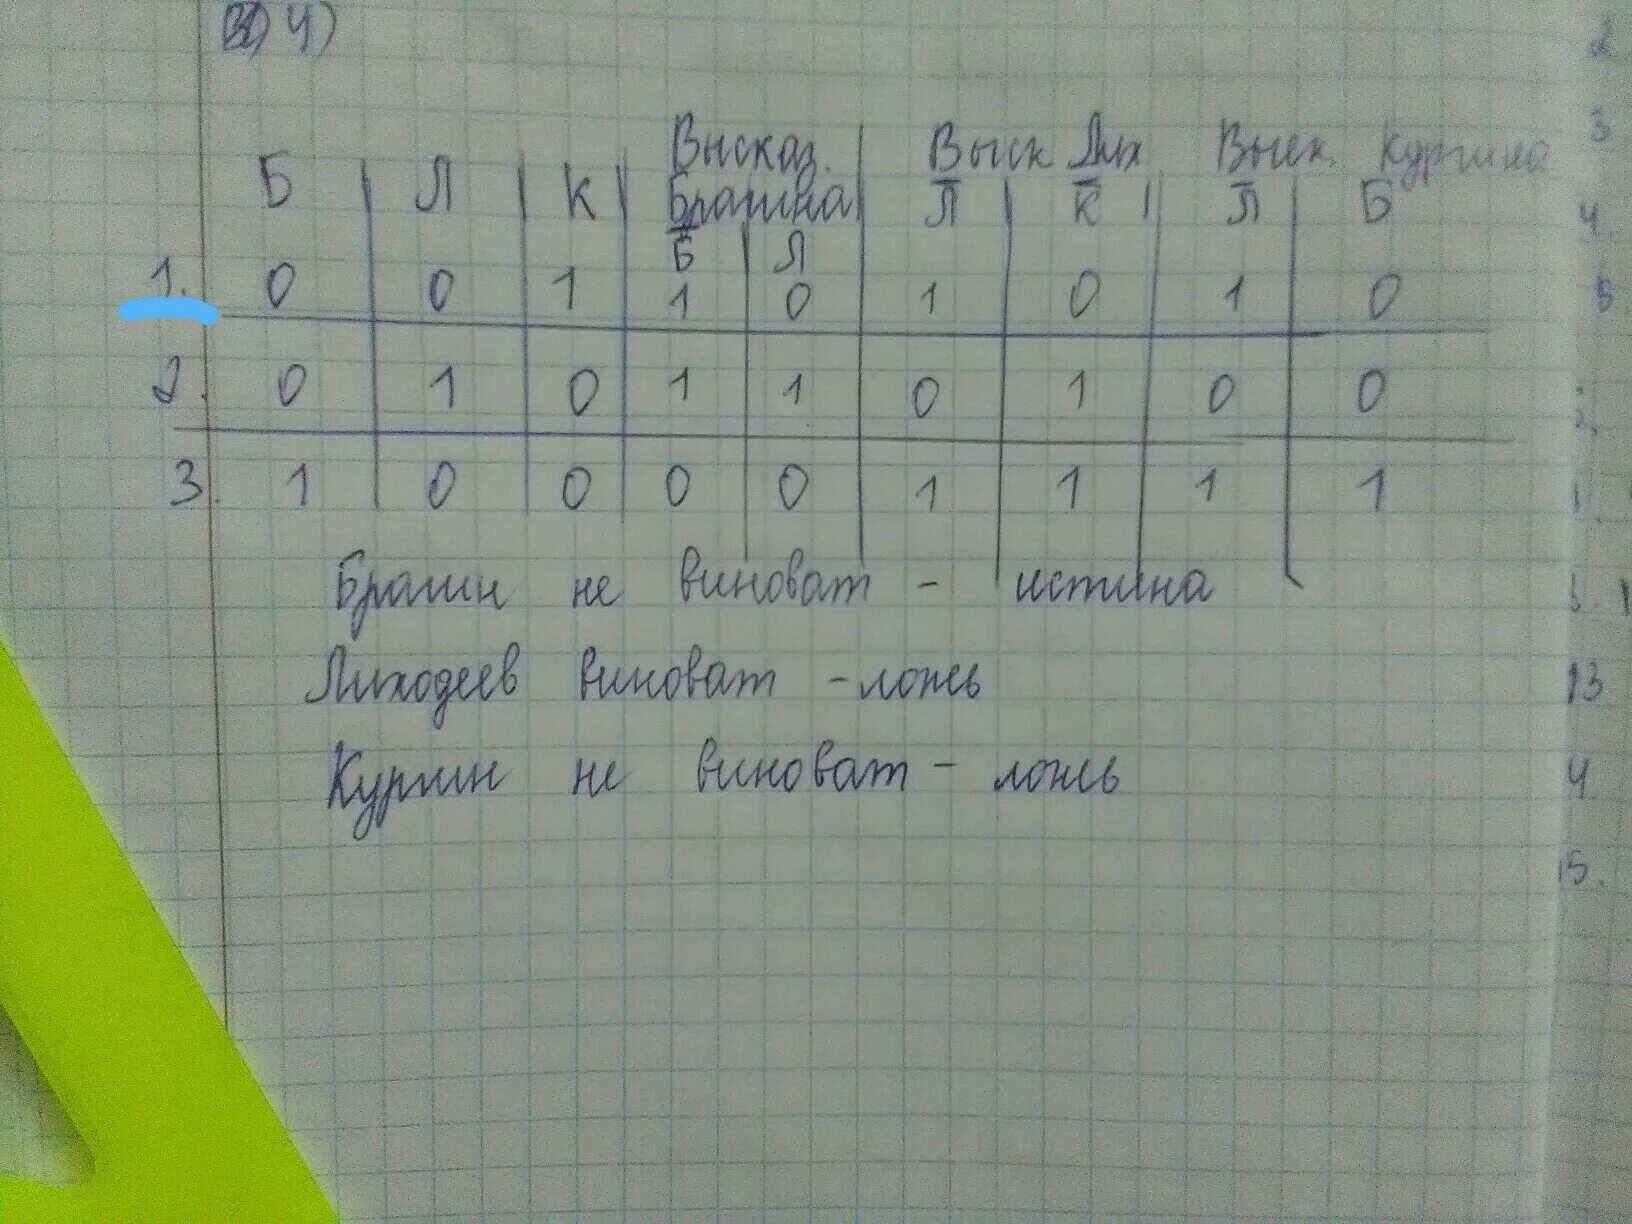 4)
Высказ. Выск Лих Выск. Кургина
Б Л К Брагина Л̅ К̅ Л̅ Б
Б̅ Л
1. 0 0 1 1 0 1 0 1 0
2. 0 1 0 1 1 0 1 0 0
3. 1 0 0 0 0 1 1 1 1
Брагин не виноват - истина
Лиходеев виноват - ложь
Кургин не виноват - ложь
2
3
4.
5
13
4
15.